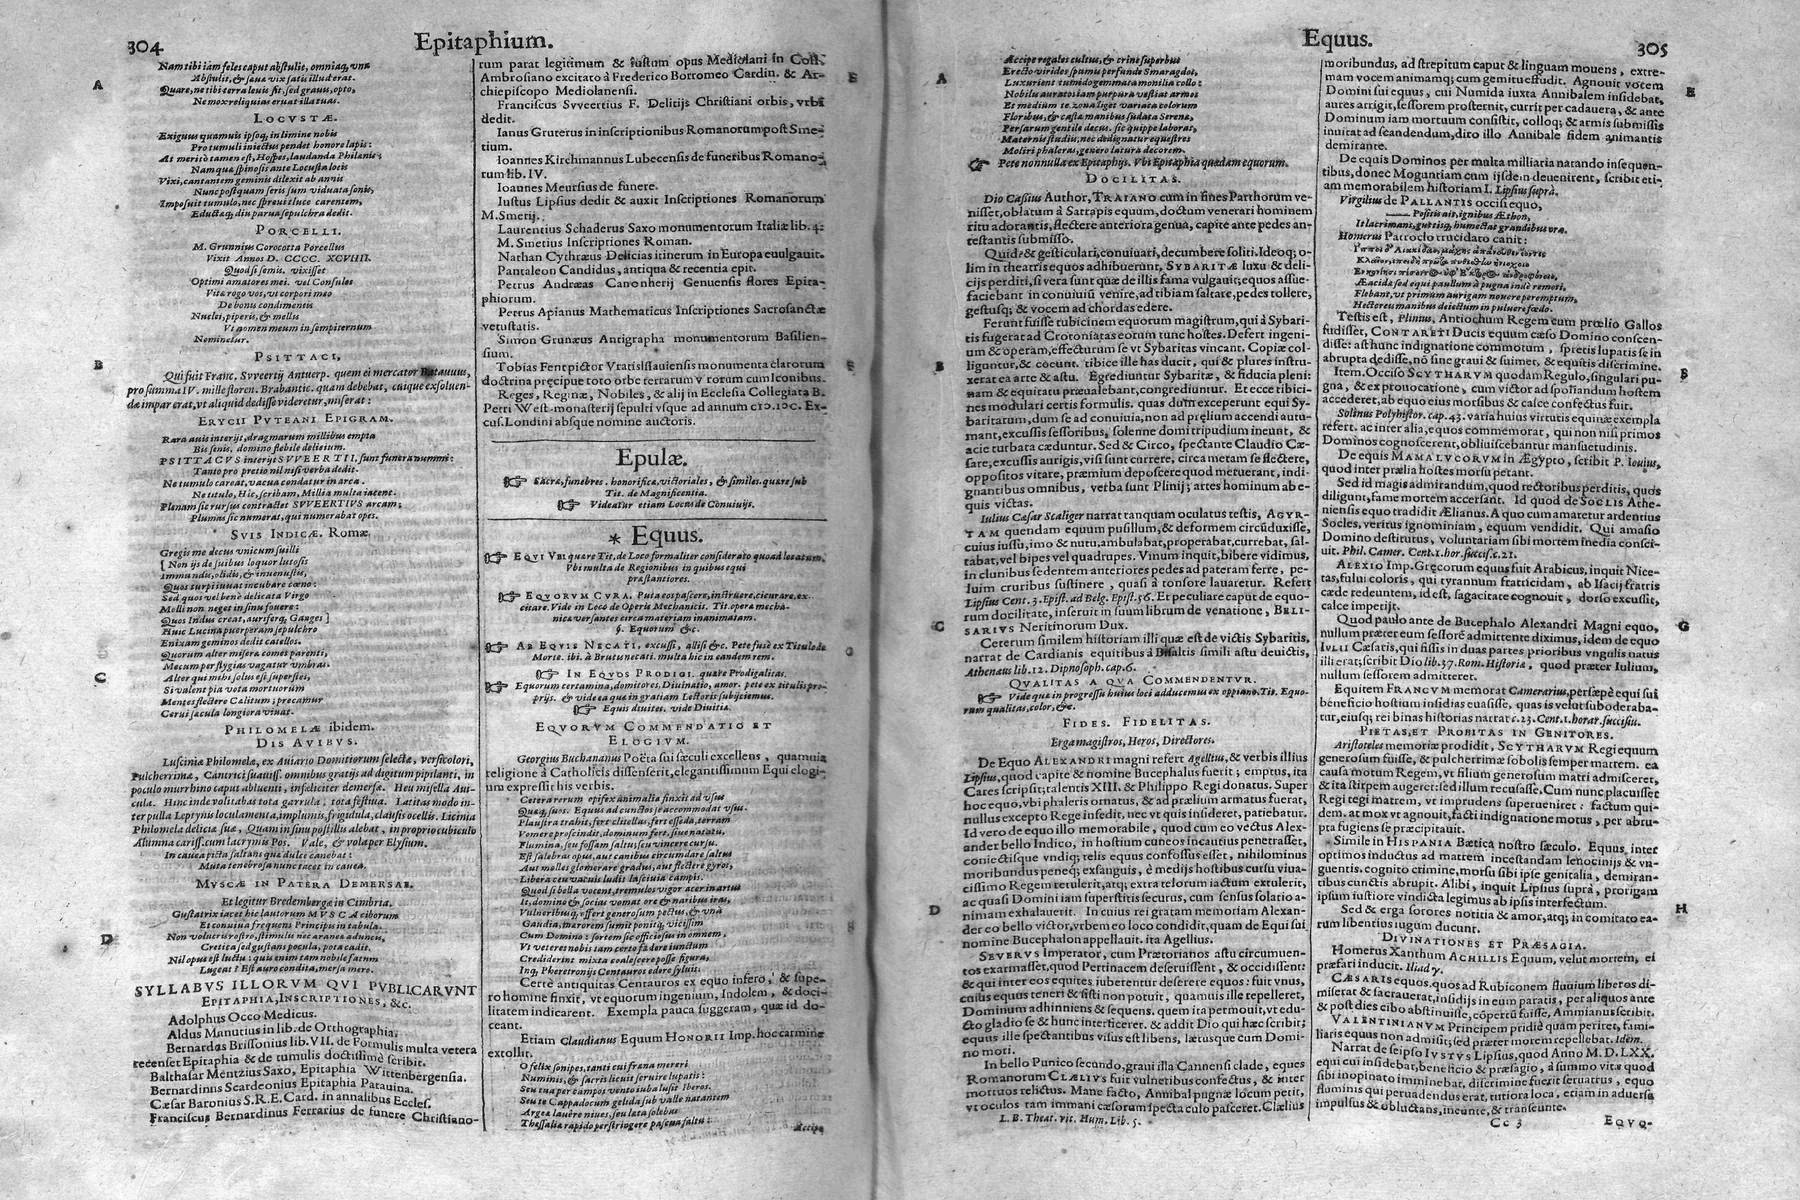 304
Epitaphium.
Nam tibi iam feles caput abstulit, omniaq; vna
Abstulit, & sæua vix satis illud erat.
Quare, ne tibi terra leuis sit, sed grauis, opto,
Ne mox reliquias eruat illa tuas.
LOCVSTÆ.
Exiguus quamuis ipsoq; in limine nobis
Pro tumuli iniectus pendet honore lapis:
At meritò tamen est, Hospes, laudanda Philanis;
Nam quæ spinosis ante Locusta locis
Vixi, cantantem geminis dilexit ab annis
Nunc postquam seris sum viduata sonis,
Imposuit tumulo, nec spreuit luce carentem,
Eductaq; diu parua sepulchra dedit.
PORCELLI.
M. Grunnius Corocotta Porcellus
Vixit Annos D. CCCC. XCVIIII.
Quod si semis. vixisset
Optimi amatores mei. vel Consules
Vitæ rogo vos, vt corpori meo
De bonis condimentis
Nuclei, piperis, & mellis
Vt nomen meum in sempiternum
Nominetur.
PSITTACI,
Qui fuit Franc. Svveertij Antuerp. quem ei mercator Batauuus,
pro summa IV. mille floren. Brabantic. quam debebat, cuique exsoluen-
dæ impar erat, vt aliquid dedisse videretur, miserat:
ERYCII PVTEANI EPIGRAM.
Rara auis interijt, dragmarum millibus empta
Bis senis, domino flebile delicium.
PSITTACVS interijt SVVEERTII, sunt funera nummi:
Tanto pro pretio nil nisi verba dedit.
Ne tumulo careat, vacua condatur in arca.
Ne titulo, Hic, scribam, Millia multa iacent.
Plenam sic rursus contractet SVVEERTIVS arcam;
Plumas sic numerat, qui numerabat opes.
SVIS INDICÆ. Romæ
Gregis me decus vnicum suilli
[Non ijs de suibus loquor lutosis
Immundis, olidis, & inuenustis,
Quos turpi iuuat incubare cœno:
Sed quos vel bene delicata Virgo
Molli non neget in sinu fouere:
Quos Indus creat, auriferq; Ganges]
Huic Lucina puerperam sepulchro
Enixam geminos dedit catellos.
Quorum alter misera comes parenti,
Mecum per stygias vagatur vmbras.
Alter qui mihi solus est superstes,
Si valent pia vota mortuorum
Mentes flectere Cælitum; precamur
Cerui sæcula longiora viuat.
PHILOMELÆ ibidem.
DIS AVIBVS.
Lusciniæ Philomelæ, ex Auiario Domitiorum selectæ, versicolori,
Pulcherrimæ, Cantrici suauiss. omnibus gratijs ad digitum pipilanti, in
poculo murrhino caput abluenti, infeliciter demersæ. Heu misella Aui-
cula. Hinc inde volitabas tota garrula, tota festiua. Latitas modo in-
ter pulla Leptynis loculamenta, implumis, frigidula, clausis ocellis. Licinia
Philomela deliciæ suæ, Quam in sinu postillis alebat, in proprio cubiculo
Alumna cariss. cum lacrymis Pos. Vale, & vola per Elysium.
In cauea picta saltans quæ dulce canebat:
Muta tenebrosa nunc iacet in cauea.
MVSCÆ IN PATERA DEMERSAE.
Et legitur Bredembergæ in Cimbria.
Gustatrix iacet hic lautorum MVSCA ciborum
Et conuiua frequens Principis in tabula.
Non volucris rostro, stimulis nec aranea aduncis,
Cretica sed gustans pocula, pota cadit.
Nil opus est luctu: quis enim tam nobile fatum
Lugeat? Est auro condita, mersa mero.
SYLLABVS ILLORVM QVI PVBLICARVNT
EPITAPHIA, INSCRIPTIONES, &c.
Adolphus Occo Medicus.
Aldus Manutius in lib. de Orthographia.
Bernardus Brissonius lib. VII. de Formulis multa vetera
recenset Epitaphia & de tumulis doctissimè scribit.
Balthasar Mentzius Saxo, Epitaphia Wittenbergensia.
Bernardinus Scardeonius Epitaphia Patauina.
Cæsar Baronius S.R.E. Card. in annalibus Eccles.
Franciscus Bernardinus Ferrarius de funere Christiano-
rum parat legitimum & iustum opus Mediolani in Coll.
Ambrosiano excitato à Frederico Borromeo Cardin. & Ar-
chiepiscopo Mediolanensi.
Franciscus Svveertius F. Delicijs Christiani orbis, vrbi
dedit.
Ianus Gruterus in inscriptionibus Romanorum post Sme-
tium.
Ioannes Kirchmannus Lubecensis de funeribus Romano-
rum lib. IV.
Ioannes Meursius de funere.
Iustus Lipsius dedit & auxit Inscriptiones Romanorum
M. Smetij.
Laurentius Schaderus Saxo monumentorum Italiæ lib. 4:
M. Smetius Inscriptiones Roman.
Nathan Cythræus Delicias itinerum in Europa euulgauit.
Pantaleon Candidus, antiqua & recentia epit.
Petrus Andræas Canonherij Genuensis flores Epita-
phiorum.
Petrus Apianus Mathematicus Inscriptiones Sacrosanctæ
vetustatis.
Simon Grunæus Antigrapha monumentorum Basilien-
sium.
Tobias Fentpictor Vratisslauiensis monumenta clarorum
doctrina præcipuè toto orbe terrarum virorum cum Iconibus.
Reges, Reginæ, Nobiles, & alij in Ecclesia Collegiata B.
Petri West-monasterij sepulti vsque ad annum cIↃ.IↃC. Ex-
cus. Londini absque nomine auctoris.
Epulæ.
☞ Sacræ, funebres. honorificæ, victoriales, & similes. quære sub
Tit. de Magnificentia.
☞ Videatur etiam Locus de Conuiuijs.
* Equus.
☞ EQVI VBI quære Tit. de Loco formaliter considerato quoad locatum.
Vbi multa de Regionibus in quibus equi
præstantiores.
☞ EQVORVM CVRA. Puta eos pascere, instruere, cicurare, ex-
citare. Vide in Loco de Operis Mechanicis. Tit. opera mecha-
nica versantes circa materiam inanimatam.
§. Equorum &c.
☞ AB EQVIS NECATI, excussi, allisi &c. Pete fusè ex Titulo de
Morte. ibi. à Brutu necati. multa hic in eandem rem.
☞ IN EQVOS PRODIGI. quære Prodigalitas.
☞ Equorum certamina, domitores, Diuinatio, amor. pete ex titulis pro-
prijs. & videa quæ in gratiam Lectoris subijciemus.
☞ Equis diuites. vide Diuitiæ.
EQVORVM COMMENDATIO ET
ELOGIVM.
Georgius Buchananus Poëta sui sæculi excellens, quamuis
religione à Catholicis dissenserit, elegantissimum Equi elogi-
um expressit his verbis.
Cetera rerum opifex animalia finxit ad vsus
Quæq; suos. Equus ad cunctos se accommodat vsus.
Plaustra trahit, fert clitellas, fert esseda, terram
Vomere proscindit, dominum fert, siue natatu,
Flumina, seu fossam saltu, seu vincere cursu.
Est salebras opus, aut canibus circumdare saltus
Aut molles glomerare gradus, aut flectere gyros,
Libera ceu vacuis ludit lasciuia campis.
Quod si bella vocent, tremulos vigor acer in artus
It, domino & socius vomat ore & naribus iras,
Vulneribusq; offert generosum pectus, & vna
Gaudia, mærorem sumit ponitq; vicissim
Cum Domino: sortem sic officiosus in omnem,
Vt veteres nobis tam certo fœdere iunctum
Crediderint mixta coalescere posse figura,
Inq; Pheretronijs Centauros edere syluis.
Certè antiquitas Centauros ex equo infero, & supe-
ro homine finxit, vt equorum ingenium, Indolem, & doci-
litatem indicarent. Exempla pauca suggeram, quæ id do-
ceant.
Etiam Claudianus Equum HONORII Imp. hoc carmine
extollit.
O felix sonipes, tanti cui fræna mereri
Numinis, & sacris licuit seruire lupatis:
Seu tua per campos vento iuba lusit Iberos.
Seu te Cappadocum gelida sub valle natantem
Argeæ lauere niues, seu læta solebas
Thessaliæ rapido perstringere pascua saltu:
Accipe
Equus.
305
Accipe regales cultus, & crine superbus
Erecto virides spuma perfunde Smaragdos,
Luxurient tumido gemmata monilia collo:
Nobilis auratos iam purpura vestiat armos
Et medium te zona liget variata colorum
Floribus, & castæ manibus sudata Serenæ,
Persarum gentile decus. sic quippe laborat,
Maternis studijs, nec dedignatur equestres
Moliri phaleras, genero latura decorem.
☞ Pete nonnulla ex Epitaphijs. Vbi Epitaphia quædam equorum.
DOCILITAS.
Dio Cassius Author, TRAIANO cum in fines Parthorum ve-
nisset, oblatum à Satrapis equum, doctum venerari hominem
ritu adorantis, flectere anteriora genua, capite ante pedes an-
testantis submisso.
Quid? & gesticulari, conuiuari, decumbere soliti. Ideoq; o-
lim in theatris equos adhibuerunt, SYBARITÆ luxu & deli-
cijs perditi, si vera sunt quæ de illis fama vulgauit; equos assue-
faciebant in conuiuiũ venire, ad tibiam saltare, pedes tollere,
gestusq; & vocem ad chordas edere.
Ferunt fuisse tubicinem equorum magistrum, qui à Sybari-
tis fugerat ad Crotoniatas eorum tunc hostes. Defert ingeni-
um & operam, effecturum se vt Sybaritas vincant. Copiæ col-
liguntur, & coeunt. tibice ille has ducit, qui & plures instru-
xerat ea arte & astu. Egrediuntur Sybaritæ, & fiducia pleni:
nam & equitatu præualebant, congrediuntur. Et ecce tibici-
nes modulari certis formulis. quas dum exceperunt equi Sy-
baritarum, dum se ad conuiuia, non ad prælium accendi autu-
mant, excussis sessoribus, solenne domi tripudium ineunt, &
acie turbata cæduntur. Sed & Circo, spectante Claudio Cæ-
sare, excussis aurigis, visi sunt currere, circa metam se flectere,
oppositos vitare, præmium deposcere quod metuerant, indi-
gnantibus omnibus, verba sunt Plinij; artes hominum abe-
quis victas.
Iulius Cæsar Scaliger narrat tanquam oculatus testis, AGYR-
TAM quendam equum pusillum, & deformem circũduxisse,
cuius iussu, imo & nutu, ambulabat, properabat, currebat, sal-
tabat, vel bipes vel quadrupes. Vinum inquit, bibere vidimus,
in clunibus sedentem anteriores pedes ad pateram ferre, pe-
luim cruribus sustinere, quasi à tonsore lauaretur. Refert
Lipsius Cent. 3. Epist. ad Belg. Epist. 56. Et peculiare caput de equo-
rum docilitate, inseruit in suum librum de venatione, BELI-
SARIVS Neritinorum Dux.
Ceterum similem historiam illi quæ est de victis Sybaritis,
narrat de Cardianis equitibus à Bisaltis simili astu deuictis,
Athenæus lib. 12. Dipnosoph. cap. 6.
QVALITAS A QVA COMMENDENTVR.
☞ Vide quæ in progressu huius loci adducemus ex oppiano. Tit. Equo-
rum qualitas, color, &c.
FIDES. FIDELITAS.
Erga magistros, Heros, Directores.
De Equo ALEXANDRI magni refert Agellius, & verbis illius
Lipsius, quod capite & nomine Bucephalus fuerit; emptus, ita
Cares scripsit; talentis XIII. & Philippo Regi donatus. Super
hoc equo, vbi phaleris ornatus, & ad prælium armatus fuerat,
nullus excepto Rege insedit, nec vt quis insideret, patiebatur.
Id vero de equo illo memorabile, quod cum eo vectus Alex-
ander bello Indico, in hostium cuneos incautius penetrasset,
coniectisque vndiq; telis equus confossus esset, nihilominus
moribundus peneq; exsanguis, è medijs hostibus cursu viua-
cissimo Regem retulerit, atq; extra telorum iactum extulerit,
ac quasi Domini iam superstitis securus, cum sensus solatio a-
nimam exhalauerit. In cuius rei gratam memoriam Alexan-
der eo bello victor, vrbem eo loco condidit, quam de Equi sui
nomine Bucephalon appellauit. ita Agellius.
SEVERVS Imperator, cum Prætorianos astu circumuen-
tos exarmasset, quod Pertinacem deseruissent, & occidissent:
& qui inter eos equites iuberentur deserere equos: fuit vnus,
cuius equus teneri & sisti non potuit, quamuis ille repelleret,
Dominum adhinniens & sequens. quem ita permouit, vt edu-
cto gladio se & hunc interficeret. & addit Dio qui hæc scribit;
equus ille spectantibus visus est libens, lætusque cum Domi-
no mori.
In bello Punico secundo, graui illa Cannensi clade, eques
Romanorum CLÆLIVS fuit vulneribus confectus, & inter
mortuos relictus. Mane facto, Annibal pugnæ locum petit,
vt oculos tam immani cæsorum spectaculo pasceret. Clælius
L. B. Theat. vit. Hum. Lib. 5.
moribundus, ad strepitum caput & linguam mouens, extre-
mam vocem animamq; cum gemitu estudit. Agnouit vocem
Domini sui equus, cui Numida iuxta Annibalem insidebat,
aures arrigit, sessorem prosternit, currit per cadauera, & ante
Dominum iam mortuum consistit, colloq; & armis submissis
inuitat ad scandendum, diro illo Annibale fidem animantis
demirante.
De equis Dominos per multa milliaria natando insequen-
tibus, donec Moguntiam cum ijsdem deuenirent, scribit eti-
am memorabilem historiam I. Lipsius suprà.
Virgilius de PALLANTIS occisi equo,
—— Positis ait, ignibus Æthon,
It lacrimans, guttisq; humectat grandibus ora.
Homerus Patroclo trucidato canit:
Æacidæ sed equi paullum à pugna inde remoti,
Flebant, vt primum aurigam nouere peremptum,
Hectoreu manibus deiectum in puluere fœdo.
Testis est, Plinius, Antiochum Regem cum prœlio Gallos
fudisset, CONTARETI Ducis equum cæso Domino conscen-
disse: ast hunc indignatione commotum, spretis lupatis se in
abrupta dedisse, nõ sine graui & suimet, & equitis discrimine.
Item. Occiso SCYTHARVM quodam Regulo, singulari pu-
gna, & ex prouocatione, cum victor ad spoliandum hostem
accederet, ab equo eius morsibus & calce confectus fuit.
Solinus Polyhistor. cap. 43. varia huius virtutis equinæ exempla
refert. ac inter alia, equos commemorat, qui non nisi primos
Dominos cognoscerent, obliuiscebantur mansuetudinis.
De equis MAMALVCORVM in Ægypto, scribit P. Iouius,
quod inter prælia hostes morsu petant.
Sed id magis admirandum, quod rectoribus perditis, quos
diligunt, fame mortem accersant. Id quod de SOCLIS Athe-
niensis equo tradidit Ælianus. A quo cum amaretur ardentius
Socles, veritus ignominiam, equum vendidit. Qui amasio
Domino destitutus, voluntariam sibi mortem inedia consci-
uit. Phil. Camer. Cent. 1. hor. succis. c. 21.
ALEXIO Imp. Græcorum equus fuit Arabicus, inquit Nice-
tas, fului coloris, qui tyrannum fratricidam, ab Isacij fratris
cæde redeuntem, id est, sagacitate cognouit, dorso excussit,
calce imperijt.
Quod paulo ante de Bucephalo Alexandri Magni equo,
nullum præter eum sessorẽ admittente diximus, idem de equo
IVLII Cæsatis, qui fissis in duas partes prioribus vngulis natus
illi erat; scribit Dio lib. 37. Rom. Historia, quod præter Iulium,
nullum sessorem admitteret.
Equitem FRANCVM memorat Camerarius, persæpè equi sui
beneficio hostium insidias euasisse, quas is velut suboderaba-
tur, eiusq; rei binas historias narrat c. 23. Cent. 1. horar. succisiu.
PIETAS, ET PROBITAS IN GENITORES.
Aristoteles memoriæ prodidit, SCYTHARVM Regi equum
generosum fuisse, & pulcherrimæ sobolis semper matrem. ea
causa motum Regem, vt filium generosum matri admisceret,
& ita stirpem augeret: sed illum recusasse. Cum nunc placuisset
Regi tegi matrem, vt imprudens superueniret: factum qui-
dem. at mox vt agnouit, facti indignatione motus, per abru-
pta fugiens se præcipitauit.
Simile in HISPANIA Bætica nostro sæculo. Equus inter
optimos inductus ad matrem incestandam lenocinijs & vn-
guentis. cognito crimine, morsu sibi ipse genitalia, demiran-
tibus cunctis abrupit. Alibi, inquit Lipsius suprà, prorigam
ipsum iustiore vindicta legimus ab ipsis interfectum.
Sed & erga sorores notitia & amor, atq; in comitato ea-
rum libentius iugum ducunt.
DIVINATIONES ET PRÆSAGIA.
Homerus Xanthum ACHILLIS Equum, velut mortem, ei
præfari inducit. Iliad γ.
CÆSARIS equos, quos ad Rubiconem fluuium liberos di-
miserat & sacrauerat, insidijs in eum paratis, per aliquos ante
& post dies cibo abstinuisse, cõpertũ fuisse, Ammian. scribit.
VALENTINIANVM Principem pridiè quam periret, fami-
liaris equus non admisit; sed præter morem repellebat. Idem.
Narrat de seipso IVSTVS Lipsius, quod Anno M. D. LXX.
equi cui insidebat, beneficio & præsagio, à summo vitæ quod
sibi inopinato imminebat, discrimine fuerit seruatus, equo
fluminis qui peruadendus erat, tutiora loca, etiam in aduersa
impulsus & obluctans, ineunte, & transeunte.
Cc 3
EQVO-